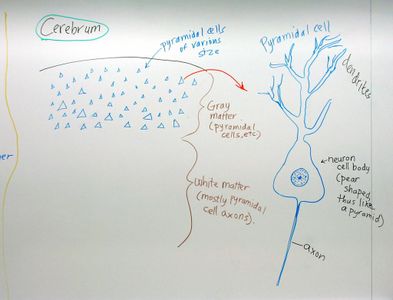 Cerebrum
pyramidal cells
of various
size
Pyramidal cell
dendrites
Gray
matter
(pyramidal
cells, etc)
White matter
(mostly pyramidal
cell axons).
neuron
cell body
(pear
shaped,
thus like
a pyramid)
axon